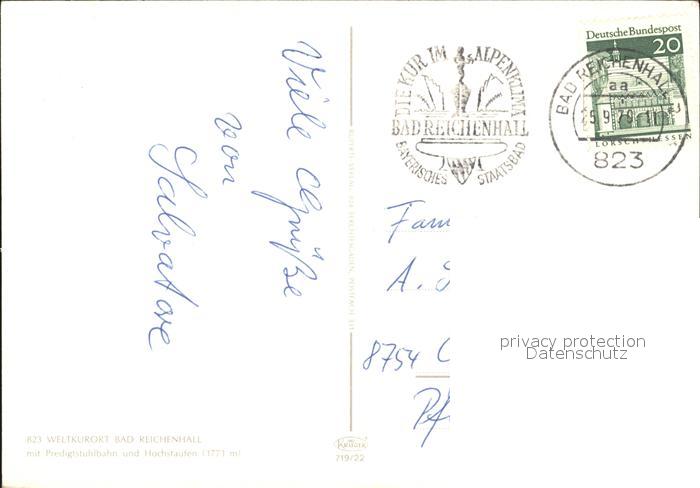 Viele Grüße
von
Salvatore
DIE KUR IM ALPENKLIMA
BAD REICHENHALL
BAYERISCHES STAATSBAD
Deutsche Bundespost
20
BAD REICHENHALL
aa
823
8754
privacy protection
Datenschutz
823 WELTKURORT BAD REICHENHALL
mit Predigtstuhlbahn und Hochstaufen (1771 m)
KRÜGER
719/22